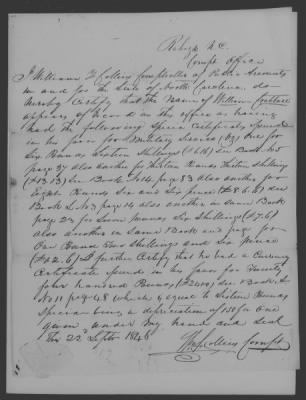 Raleigh N.C.
Compt. Office
I William F Collins Comptroller of Public Accounts
in and for the State of North Carolina, do
hereby Certify that the Name of William
appears of Record in this office as having
had the following Specie Certificates Issued
in his favor for Military Service (by) One for
Six Pounds Sixteen Shillings (£6.16) see Book No
page 37 also another for thirteen Pounds thirteen Shillings
(£13.13) see Book No 14. page 83 Also another for
Eight Pounds Six and Six pence (£8.6.6) see
Book L No 3 page 14 also another in same Book
page 23 for Seven Pounds Six Shillings (£7.6)
also another in Same Book and page for
One Pound Two Shillings and Six Pence
I further Certify that he had a Currency
Certificate Issued in his favor for Twenty
four hundred Pounds (£2400) see Book A
No 11 page 48 which is equal to Sixteen Pounds
Specie being a depreciation of 150 for One
given under my hand and Seal
this 22d Septr 1846
Wm F Collins Compt